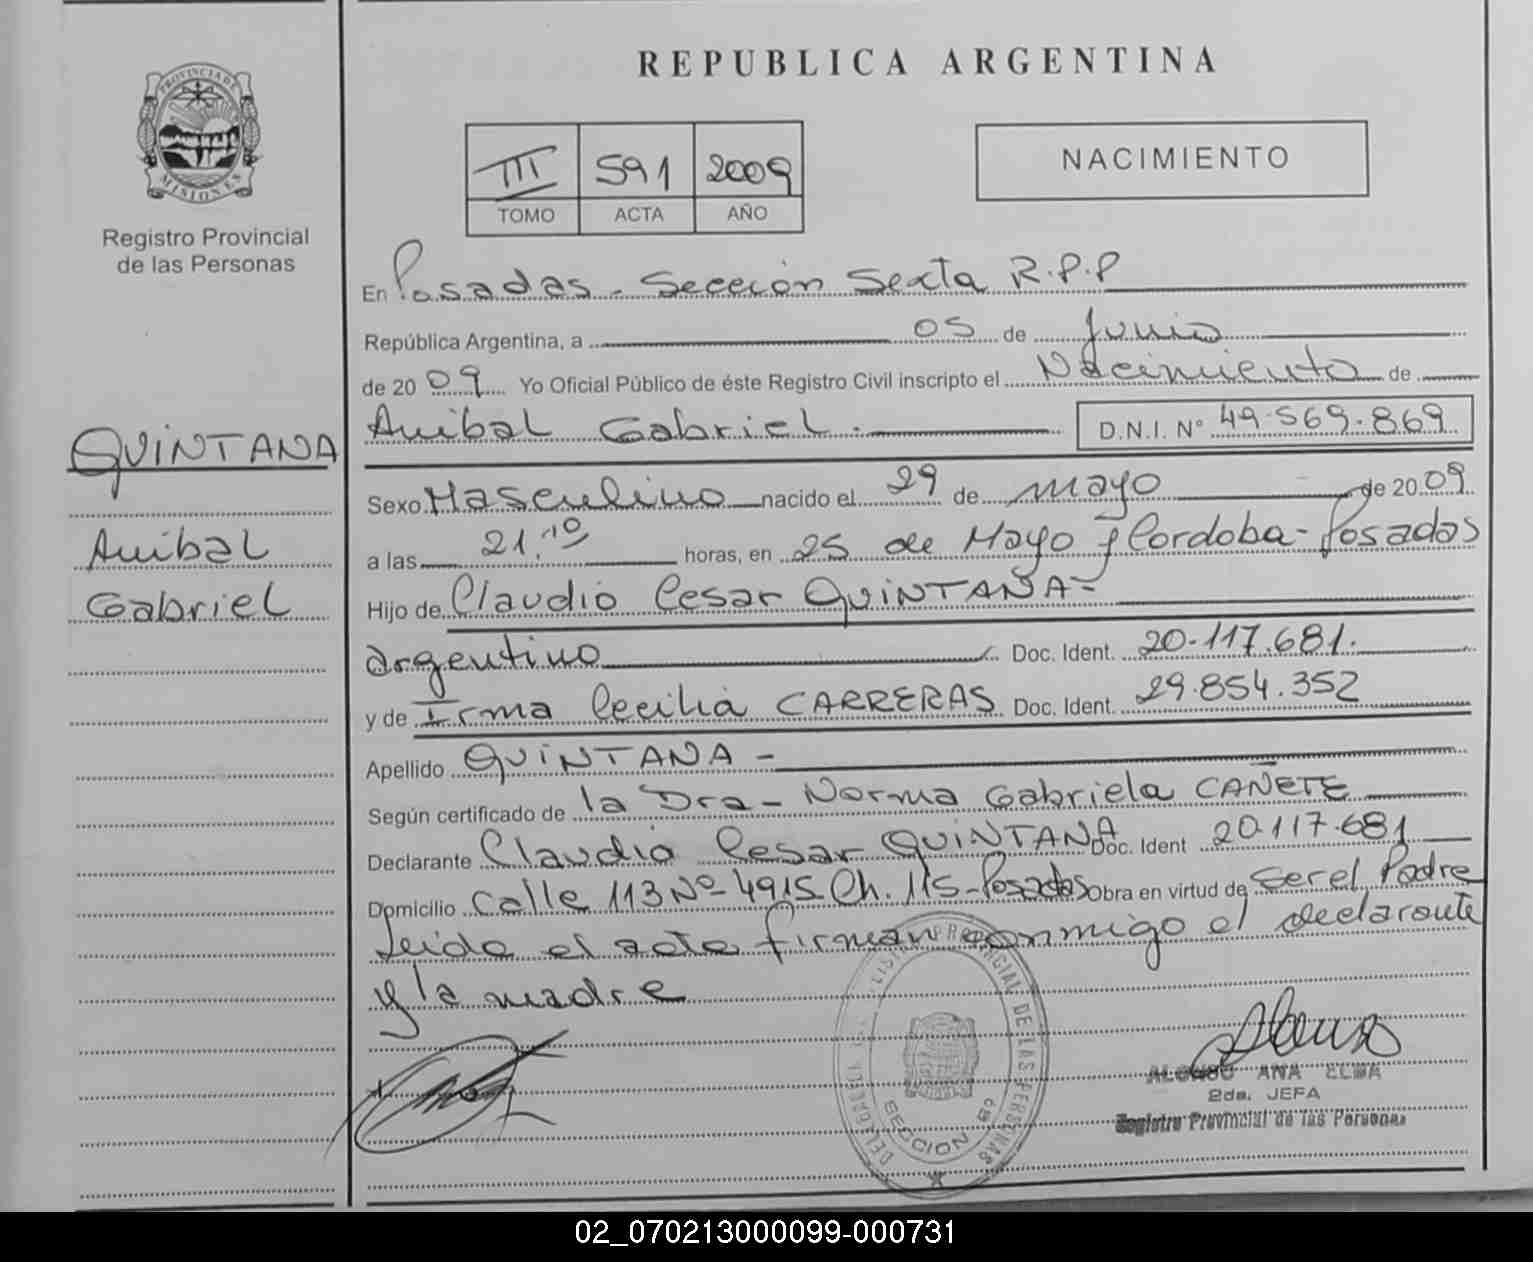 REPUBLICA ARGENTINA
PROVINCIA DE
MISIONES
Registro Provincial
de las Personas
III 591 2009
TOMO ACTA AÑO
NACIMIENTO
En Posadas - Sección Sexta R.P.P
República Argentina, a 05 de Junio
de 2009 Yo Oficial Público de éste Registro Civil inscripto el Nacimiento de
Anibal Gabriel . D.N.I. N° 49.569.869
QUiNTANA
Anibal
Gabriel
Sexo Masculino nacido el 29 de mayo de 2009
a las 21.10 horas, en 25 de Mayo y Cordoba - Posadas
Hijo de Claudio Cesar QUiNTANA -
argentino Doc. Ident. 20.117.681.
y de Irma Cecilia CARRERAS Doc. Ident. 29.854.352
Apellido QUiNTANA -
Según certificado de la Dra - Norma Gabriela CAÑETE
Declarante Claudio Cesar QUiNTANA Doc. Ident 20.117.681
Domicilio Calle 113 Nº 4915 Ch. 115 - Posadas Obra en virtud de Ser el Padre
Leida el acta firman conmigo el declarante
y la madre
PROVINCIAL DE LAS PERSONAS
SECCION 6º
ALONSO ANA ELMA
2da. JEFA
Registro Provincial de las Personas
02_070213000099-000731